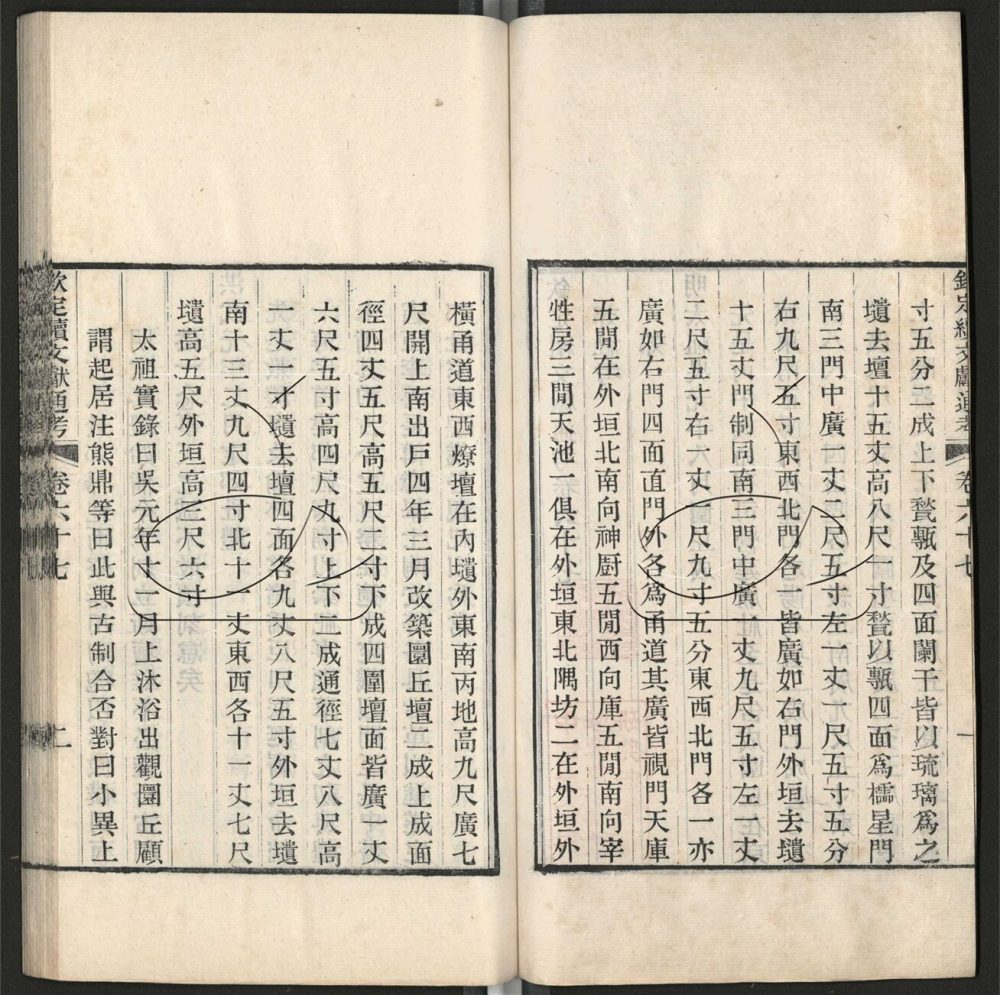 欽定續文獻通考 卷六十七 一
寸五分二成上下甃甎及四面闌干皆以琉璃爲之
壝去壇十五丈高八尺一寸甃以甎四面爲櫺星門
南三門中廣一丈二尺五寸左一丈一尺五寸五分
右九尺五寸東西北門各一皆廣如右門外垣去壝
十五丈門制同南三門中廣一丈九尺五寸左一丈
二尺五寸右一丈一尺九寸五分東西北門各一亦
廣如右門四面直門外各爲甬道其廣皆視門天庫
五閒在外垣北南向神厨五閒西向庫五閒南向宰
牲房三閒天池一俱在外垣東北隅坊二在外垣外
橫甬道東西燎壇在內壝外東南丙地高九尺廣七
尺開上南出戸四年三月改築圜丘壇二成上成面
徑四丈五尺高五尺二寸下成四圍壇面皆廣一丈
六尺五寸高四尺九寸上下二成通徑七丈八尺高
一丈一寸壝去壇四面各九丈八尺五寸外垣去壝
南十三丈九尺四寸北十一丈東西各十一丈七尺
壝高五尺外垣高三尺六寸
太祖實錄曰吳元年十一月上沐浴出觀圜丘顧
謂起居注熊鼎等曰此與古制合否對曰小異上
欽定續文獻通考 卷六十七 二